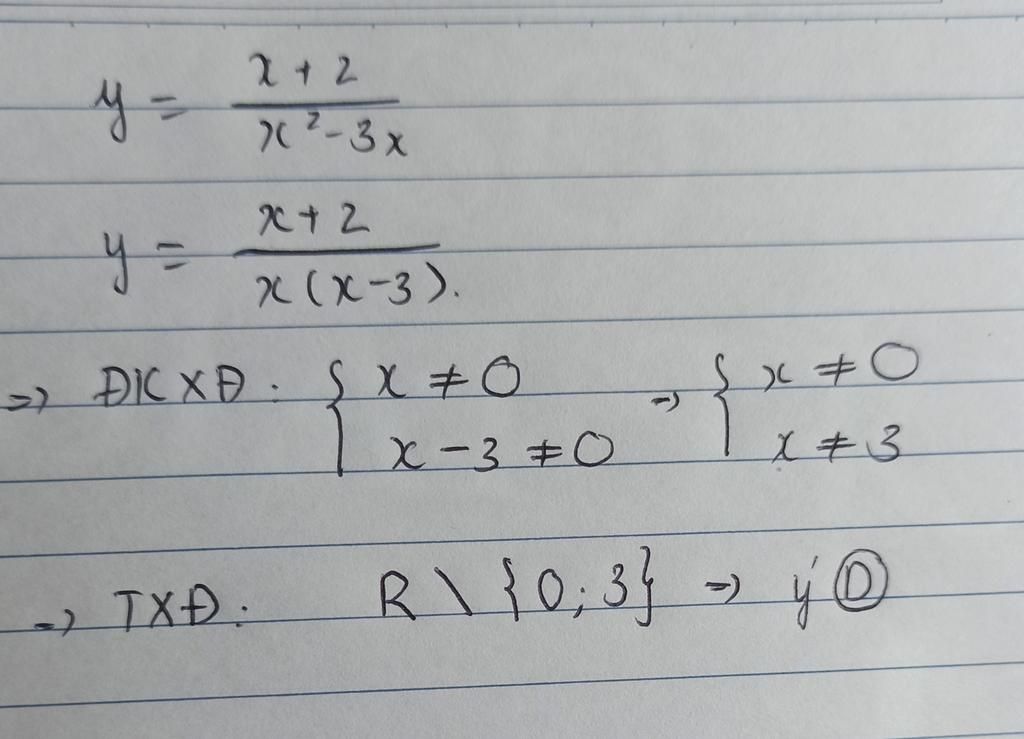 y = \frac{x + 2}{x^2 - 3x}
y = \frac{x + 2}{x(x - 3)}.
=> ĐKXĐ: { x ≠ 0 ; x - 3 ≠ 0 => { x ≠ 0 ; x ≠ 3
=> TXĐ: R \ {0; 3} => ý Ⓓ